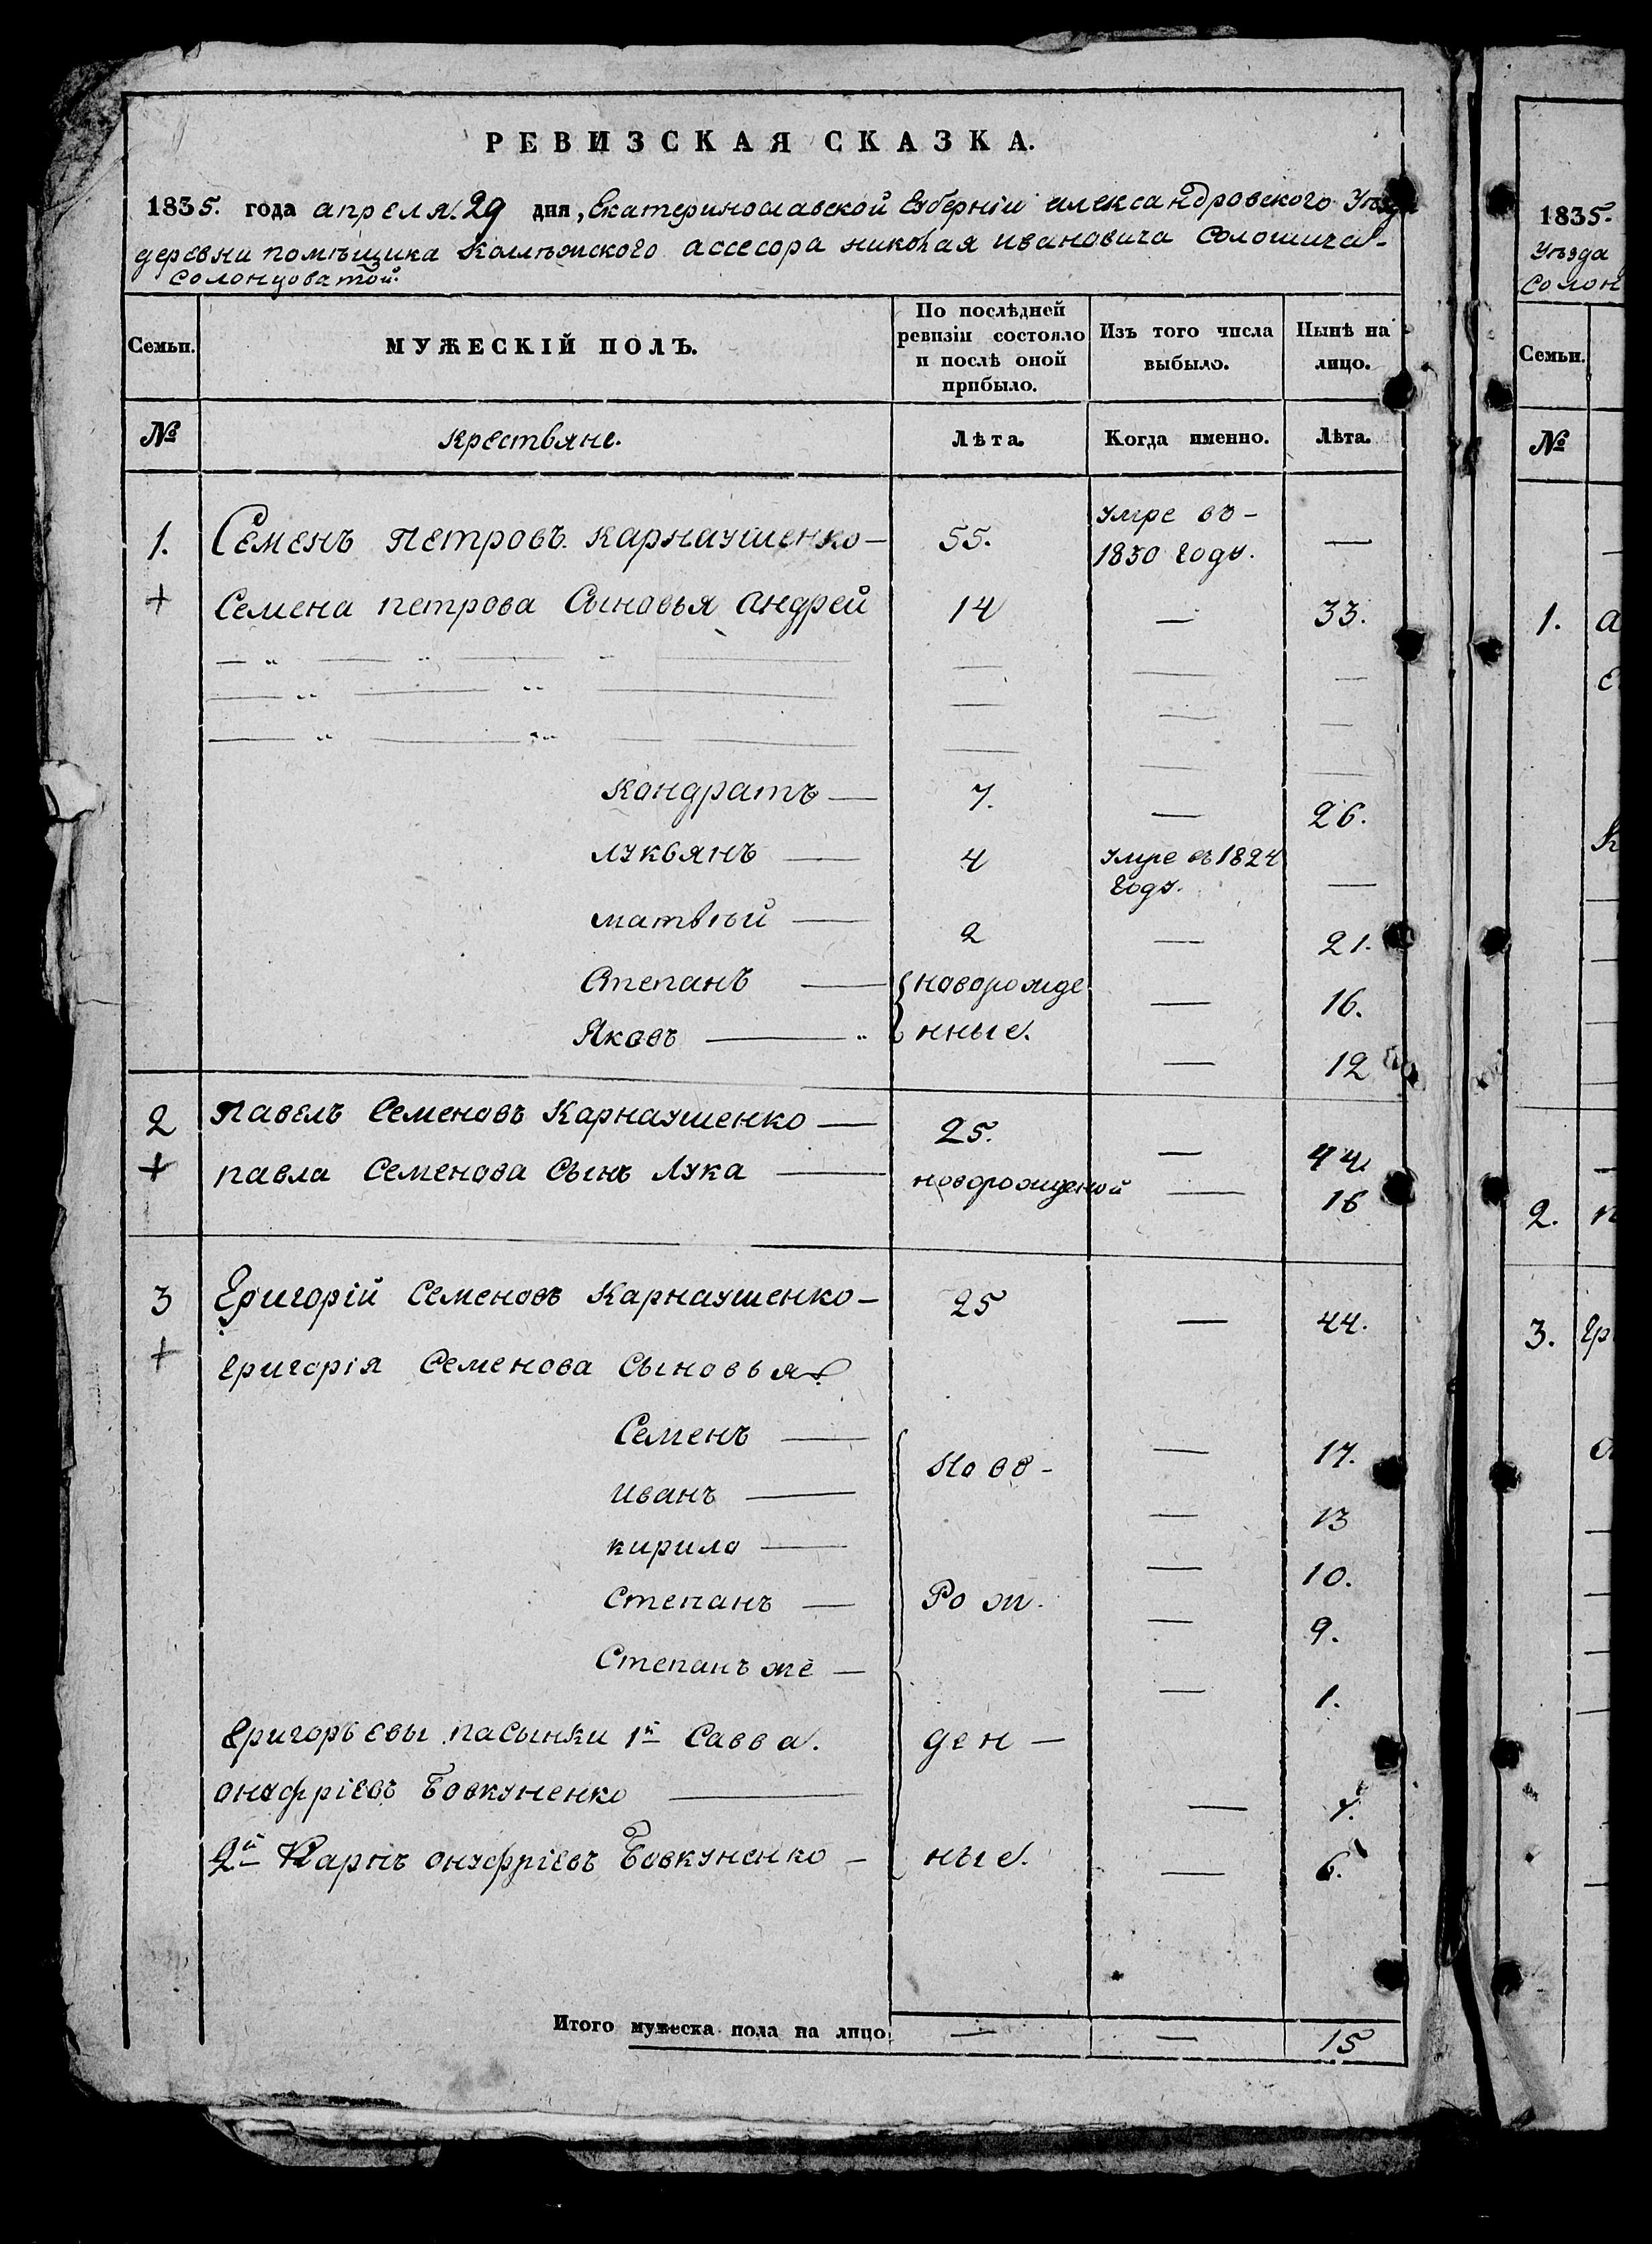 РЕВИЗСКАЯ СКАЗКА.
1835. года апреля. 29 дня, Екатеринославской Губерніи александровского Уѣзда
деревни помѣщика Коллѣжского ассесора николая ивановича Солошича-
солонцоватой.
Семьи. МУЖЕСКІЙ ПОЛЪ. По послѣдней ревизіи состояло и послѣ оной прибыло. Изъ того числа выбыло. Нынѣ на лицо.
№ крестьяне. Лѣта. Когда именно. Лѣта.
1. Семенъ петровъ. карнаушенко — 55. умре въ - 1830 году. —
+ Семена петрова Сыновья андрей 14 — 33.
Кондратъ — 7. — 26.
лукьянъ — 4 умре въ 1824 году. —
матвѣй — 2 — 21.
Степанъ — новорожде — 16.
Яковъ — нные. — 12
2 павелъ Семеновъ Карнаушенко — 25. — 44
+ павла Семенова Сынъ Лука — новорожденой — 16
3 Григорій семеновъ Карнаушенко — 25 — 44.
+ григорія Семенова Сыновья
Семенъ — Ново - — 17.
иванъ — — 13
кирило — — 10.
степанъ — Рож. — 9.
Степанъ же — — 1.
григорьевы пасынки 1й Савва. ден —
онуфріевъ Бовкуненко — — 7.
2й Карпъ онуфріевъ Бовкуненко — ные. — 6.
Итого мужеска пола на лицо — — 15
1835.
Уѣзда
Солон
Семьи.
№
1. а
2. п
3. гр